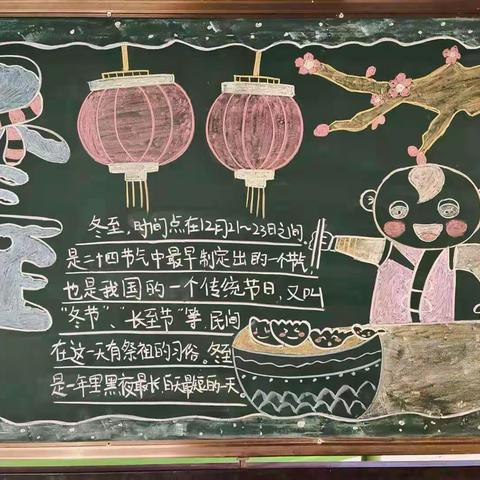 冬至
冬至，时间点在12月21~23日之间，
是二十四节气中最早制定出的一个节气，
也是我国的一个传统节日，又叫
“冬节”、“长至节”等，民间
在这一天有祭祖的习俗。冬至
是一年里黑夜最长白天最短的一天。